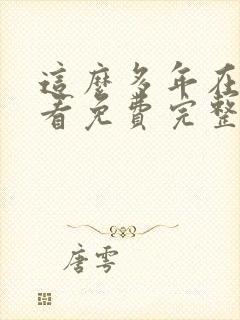 這麼多年在
看免費完整
唐雩